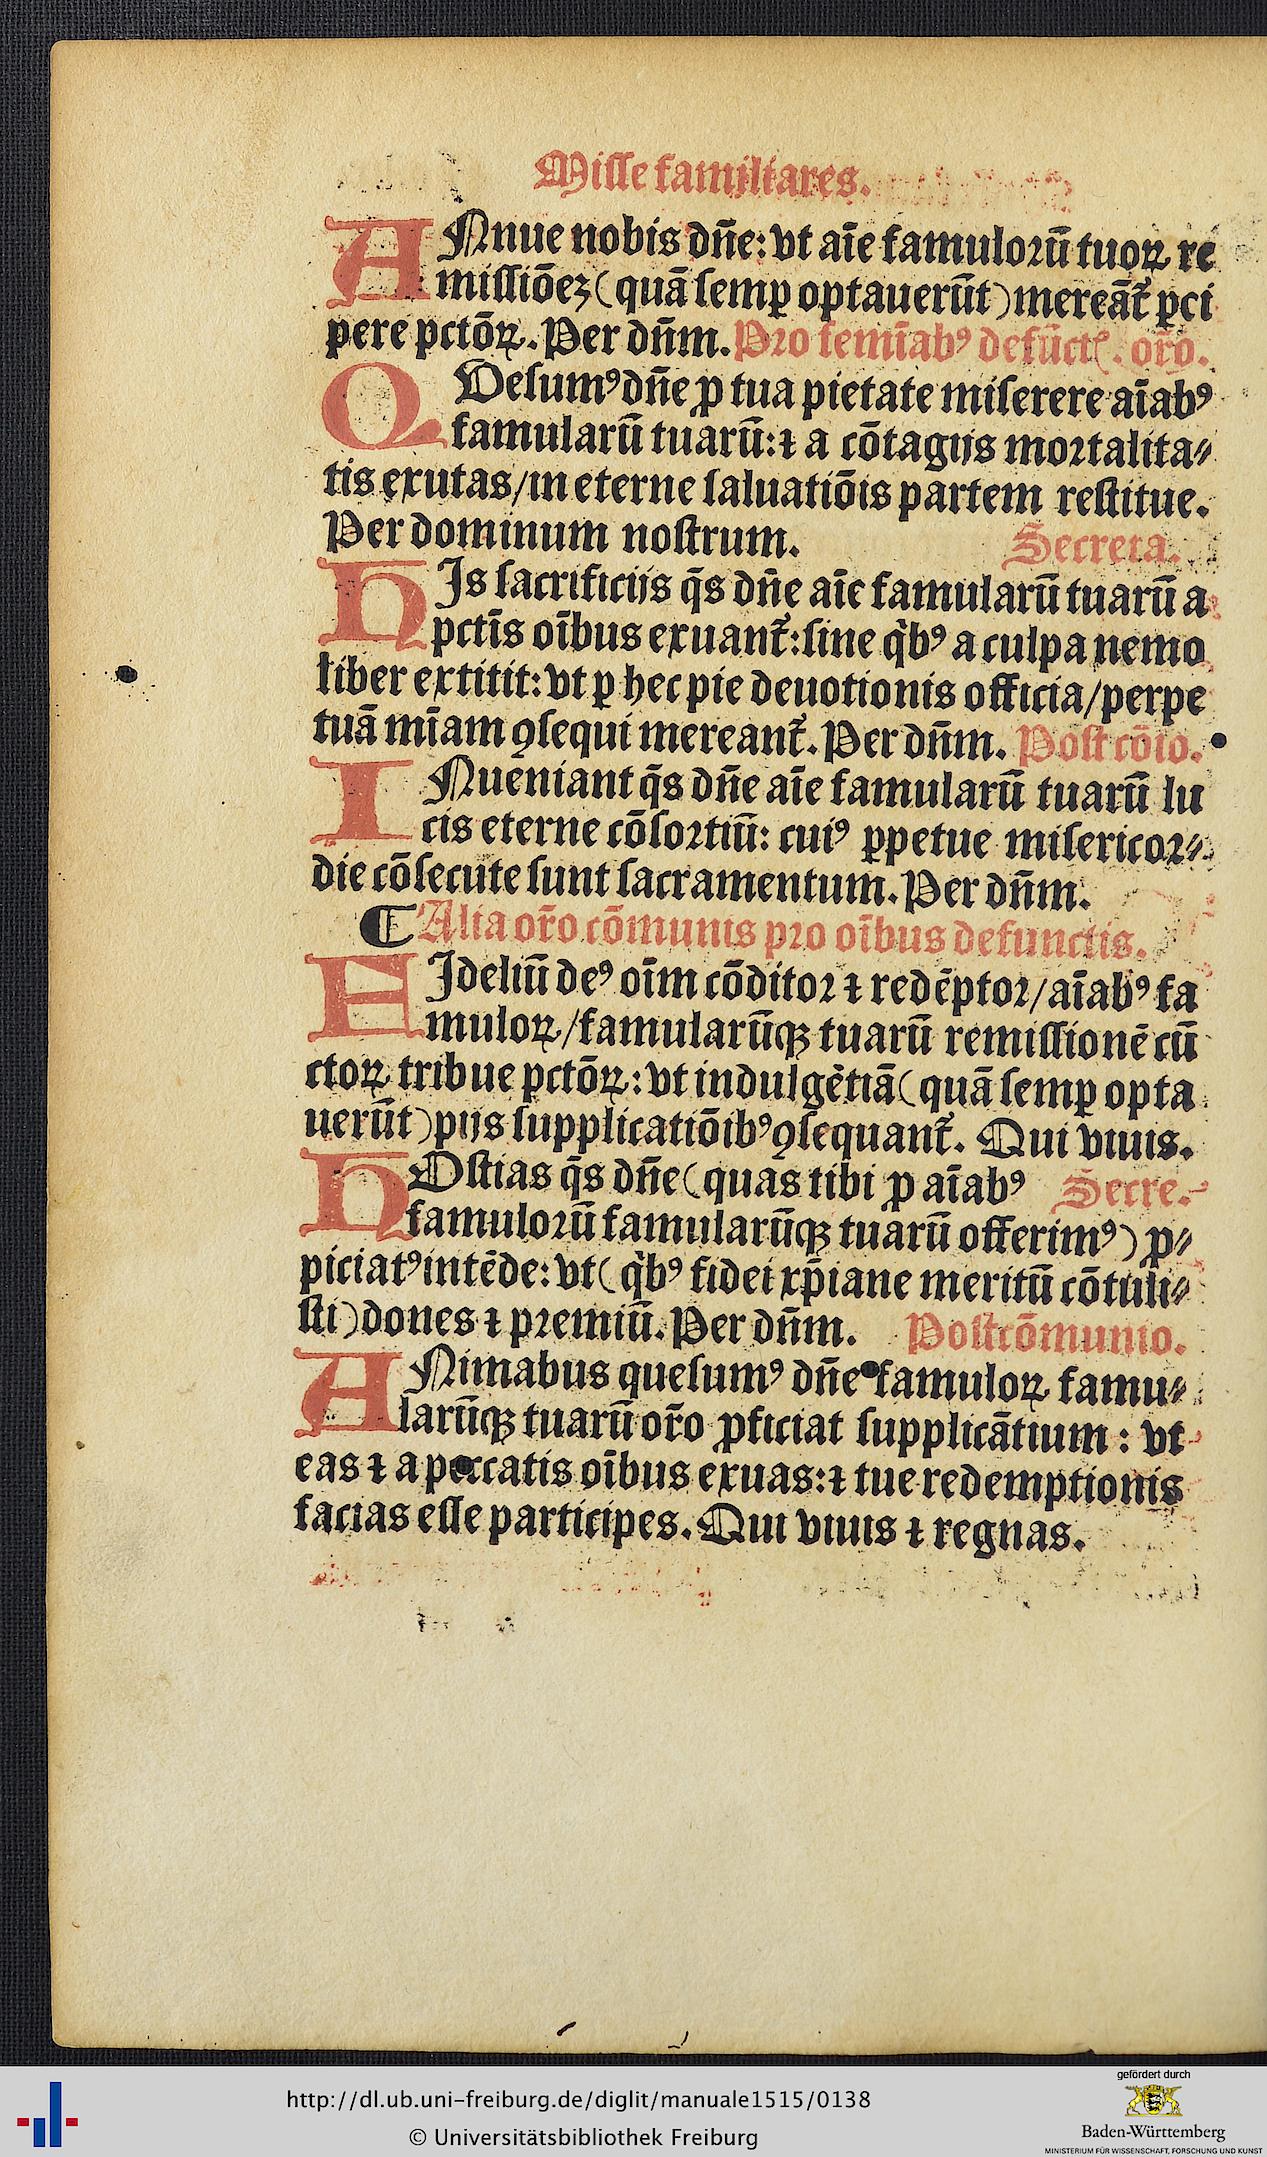 Misse familiares.
ANnue nobis dn̄e: vt aīe famuloꝛū tuoꝝ re
missiōeʒ (quā semꝑ optauerūt) mereāt᷑ ꝑci
pere pctōꝝ. Per dn̄m. Pꝛo femīabꝰ defūctꝭ. or̄o.
QUesumꝰ dn̄e ꝓ tua pietate miserere aīabꝰ
famularū tuarū: ⁊ a cōtagijs moꝛtalita⸗
tis exutas/in eterne saluatiōis partem restitue.
Per dominum nostrum. Secreta.
HIs sacrificijs q̄s dn̄e aīe famularū tuarū a
pctīs oībus exuant᷑: sine qͥbꝰ a culpa nemo
liber extitit: vt ꝑ hec pie deuotionis officia/perpe
tuā mīam ꝯsequi mereant᷑. Per dn̄m. Post cōio.
INueniant q̄s dn̄e aīe famularū tuarū lu
cis eterne cōsoꝛtiū: cuiꝰ ꝑpetue misericoꝛ⸗
die cōsecute sunt sacramentum. Per dn̄m.
¶ Alia or̄o cōmunis pꝛo oībus defunctis.
FIdeliū deꝰ oīm cōditoꝛ ⁊ redēptoꝛ/aīabꝰ fa
muloꝝ/famularūqꝫ tuarū remissionē cū
ctoꝝ tribue pctōꝝ: vt indulgētiā (quā semꝑ opta
uerūt) pijs supplicatiōibꝰ ꝯsequant᷑. Qui viuis.
HOstias q̄s dn̄e (quas tibi ꝓ aīabꝰ Secre.
famuloꝛū famularūqꝫ tuarū offerimꝰ) ꝓ⸗
piciatꝰ intēde: vt (qͥbꝰ fidei xp̄iane meritū cōtuli⸗
sti) dones ⁊ pꝛemiū. Per dn̄m. Postcōmunio.
ANimabus quesumꝰ dn̄e famuloꝝ famu⸗
larūqꝫ tuarū or̄o ꝓficiat supplicātium: vt
eas ⁊ a peccatis oībus exuas: ⁊ tue redemptionis
facias esse participes. Qui viuis ⁊ regnas.
http://dl.ub.uni-freiburg.de/diglit/manuale1515/0138
© Universitätsbibliothek Freiburg
gefördert durch
Baden-Württemberg
MINISTERIUM FÜR WISSENSCHAFT, FORSCHUNG UND KUNST